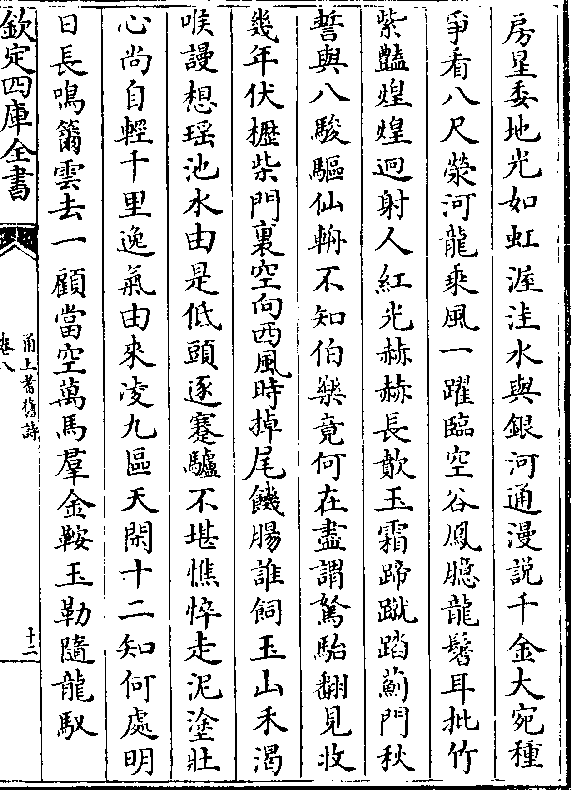 房星委地光如虹渥洼水與銀河通漫説千金大宛種
爭看八尺滎河龍乘風一躍臨空谷鳳臆龍鬐耳批竹
紫豔煌煌迥射人紅光赫赫長歕玉霜蹄蹴踏薊門秋
誓與八駿驅仙輈不知伯樂竟何在盡謂駑駘翻見收
幾年伏櫪柴門裏空向西風時掉尾饑腸誰飼玉山禾渴
喉謾想瑶池水由是低頭逐蹇驢不堪憔悴走泥塗壯
心尚自輕千里逸氣由來凌九區天閑十二知何處明
日長鳴籋雲去一顧當空萬馬羣金鞍玉勒隨龍馭
欽定四庫全書
甬上耆舊詩
卷八
十二